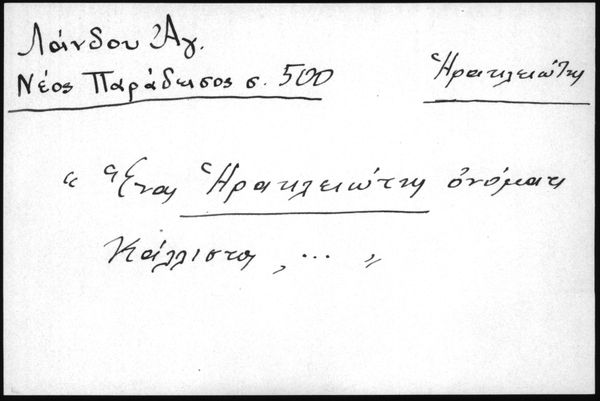 Λάνδου Ἀγ.
Νέος Παράδεισος σ. 500
Ἡρακλειώτης
“ Ἕνας Ἡρακλειώτης ὀνόματι
Κάλλιστος, ... „